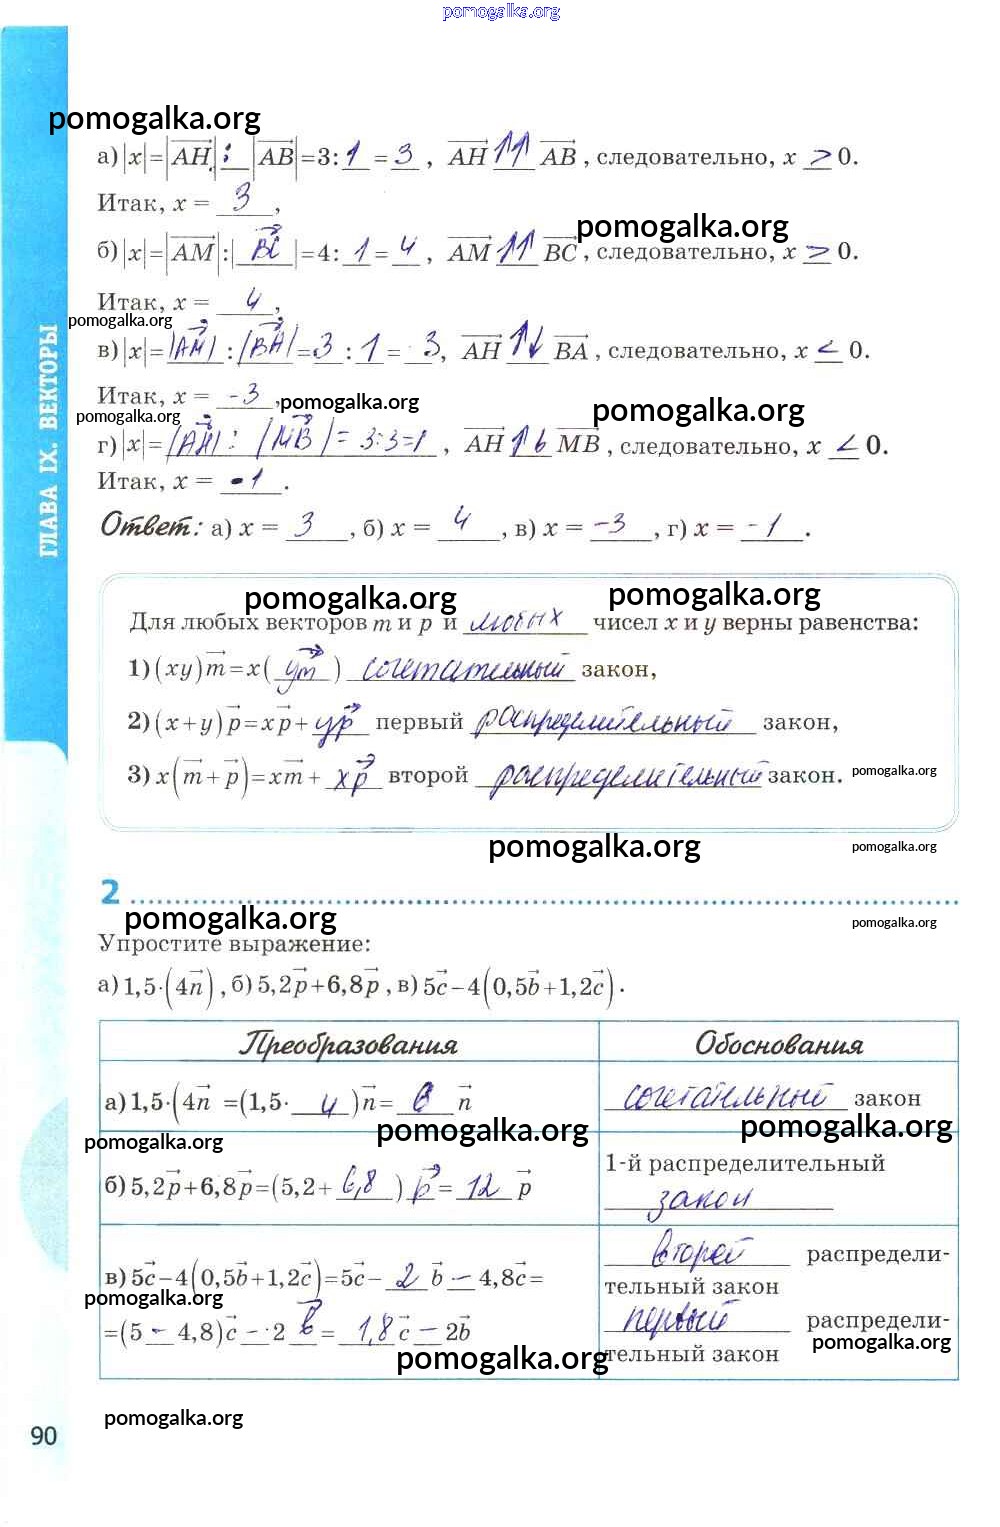 pomogalka.org
pomogalka.org
а) |x| = |AH| : |AB| = 3 : 1 = 3 , AH ↑↑ AB , следовательно, x > 0.
Итак, x = 3 ,
pomogalka.org
б) |x| = |AM| : | BC | = 4 : 1 = 4 , AM ↑↑ BC , следовательно, x > 0.
Итак, x = 4 ,
pomogalka.org
в) |x| = |AM| : |BA| = 3 : 1 = 3, AH ↑↓ BA , следовательно, x < 0.
Итак, x = -3 ,
pomogalka.org pomogalka.org pomogalka.org
г) |x| = |AH| : |MB| = 3:3=1 , AH ↑↓ MB , следовательно, x < 0.
Итак, x = -1 .
Ответ: а) x = 3 , б) x = 4 , в) x = -3 , г) x = -1 .
ГЛАВА IX. ВЕКТОРЫ
pomogalka.org pomogalka.org
Для любых векторов m и p и любых чисел x и y верны равенства:
1) (xy)m = x( ym ) сочетательный закон,
2) (x + y)p = xp + yp первый распределительный закон,
3) x(m + p) = xm + xp второй распределительный закон. pomogalka.org
pomogalka.org pomogalka.org
2
pomogalka.org pomogalka.org
Упростите выражение:
а) 1,5·(4n) , б) 5,2p + 6,8p , в) 5c − 4(0,5b + 1,2c) .
Преобразования Обоснования
а) 1,5·(4n = (1,5· 4 )n = 6 n сочетательный закон
pomogalka.org pomogalka.org pomogalka.org
б) 5,2p + 6,8p = (5,2 + 6,8 ) p = 12 p 1-й распределительный закон
в) 5c − 4(0,5b + 1,2c) = 5c − 2 b − 4,8c = второй распредели-
тельный закон
pomogalka.org
= (5 − 4,8)c − 2 b = 1,8 c − 2b первый распредели-
тельный закон
pomogalka.org pomogalka.org
pomogalka.org
90